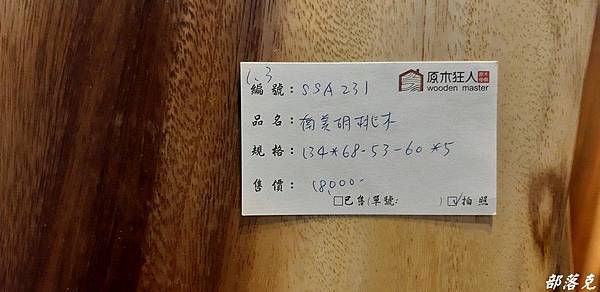 1.3
編號：SSA231
原木狂人
wooden master
品名：南美胡桃木
規格：134*68-53-60*5
售價：18,000-
□已售(單號：　　) ☑拍照
部落克